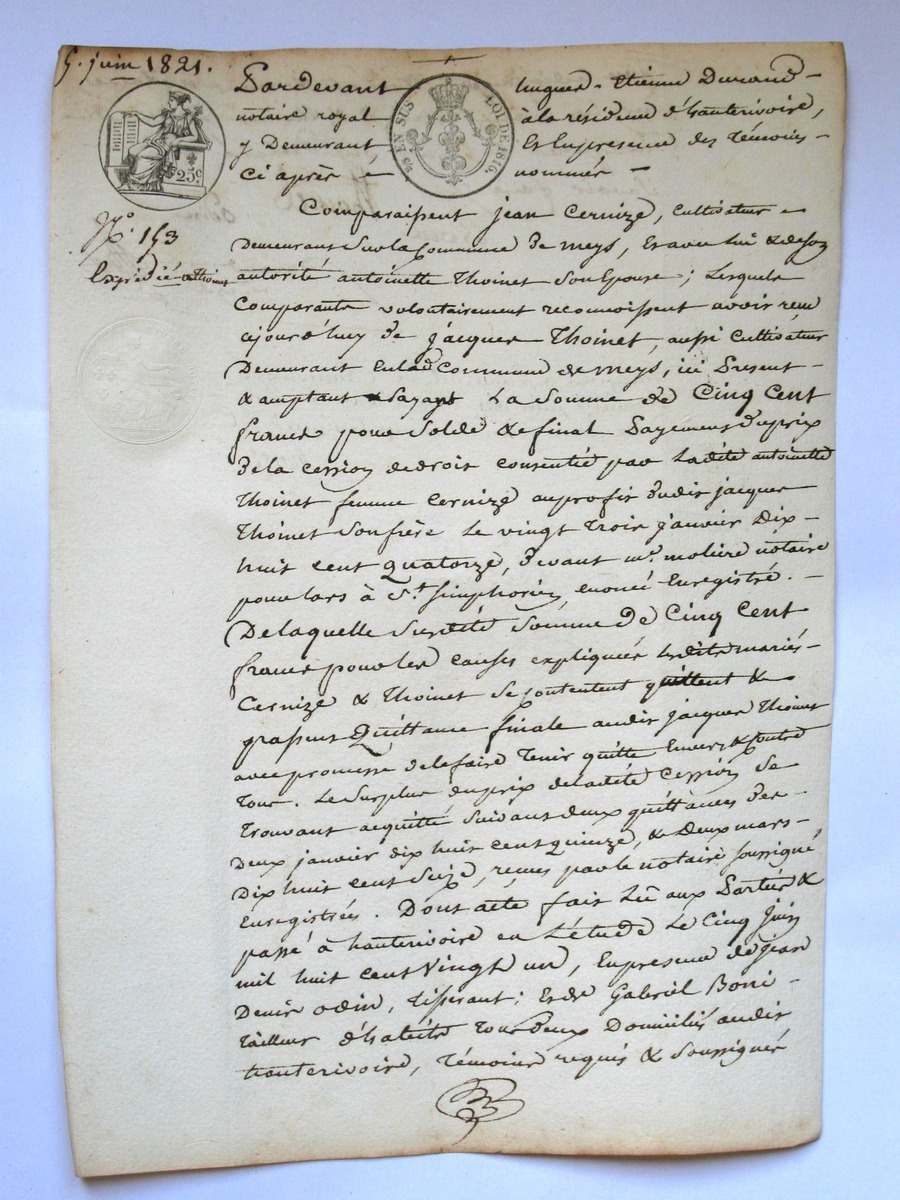 5. juin 1821.
Pardevant hugues-Etienne Durand-
notaire royal à la résidence d'hauterivoire,
y Demeurant Et En presence des témoins-
ci après é nommés -
25c
EN SUS LOI DE 1816.
N.° 153
Expédié
Comparaissent jean Cernize, Cultivateur
Demeurant Sur la Commune de meys, Et avec lui & de son
autorité antoinette Thoinet Son Epouse; Lesquels
Comparants volontairement reconnoissent avoir reçu
cejourd'huy de jacques Thoinet, aussi Cultivateur
Demeurant En lad Commune de meys, ici Present
& acceptant La Somme de Cinq Cent
francs pour Solde & final Payement du prix
de la cession de droit consentie par Ladite antoinette
Thoinet femme Cernize au profit dudit jacques
Thoinet Son frère Le vingt Trois janvier Dix-
huit cent Quatorze, devant m.e moliere notaire
pour lors à S.t Simphorien, enoncé Enregistré. -
De laquelle Susdite Somme De Cinq Cent
francs pour les causes expliquées Lesdits mariés-
Cernize & Thoinet Se Contentent quittent &
passent Quittance finale audit jacques Thoinet
avec promesse de le faire Tenir quitte Envers & Contre
Tous. Le Surplus du prix de ladite Cession Se
Trouvant acquitté Suivant deux quittances des
Deux janvier dix huit cent quinze, & Deux mars-
Dix huit cent Seize, reçues par le notaire soussigné
Enregistrés. Dont acte fait Lû aux Parties &
passé à hauterivoire en L'étude Le Cinq Juin
mil huit cent Vingt un, En presence de jean
Denis odin, tisserant; Et de Gabriel Boni-
Tailleur d'habits Tous deux Domiciliés audit
hauterivoire, Témoins requis & Soussignés